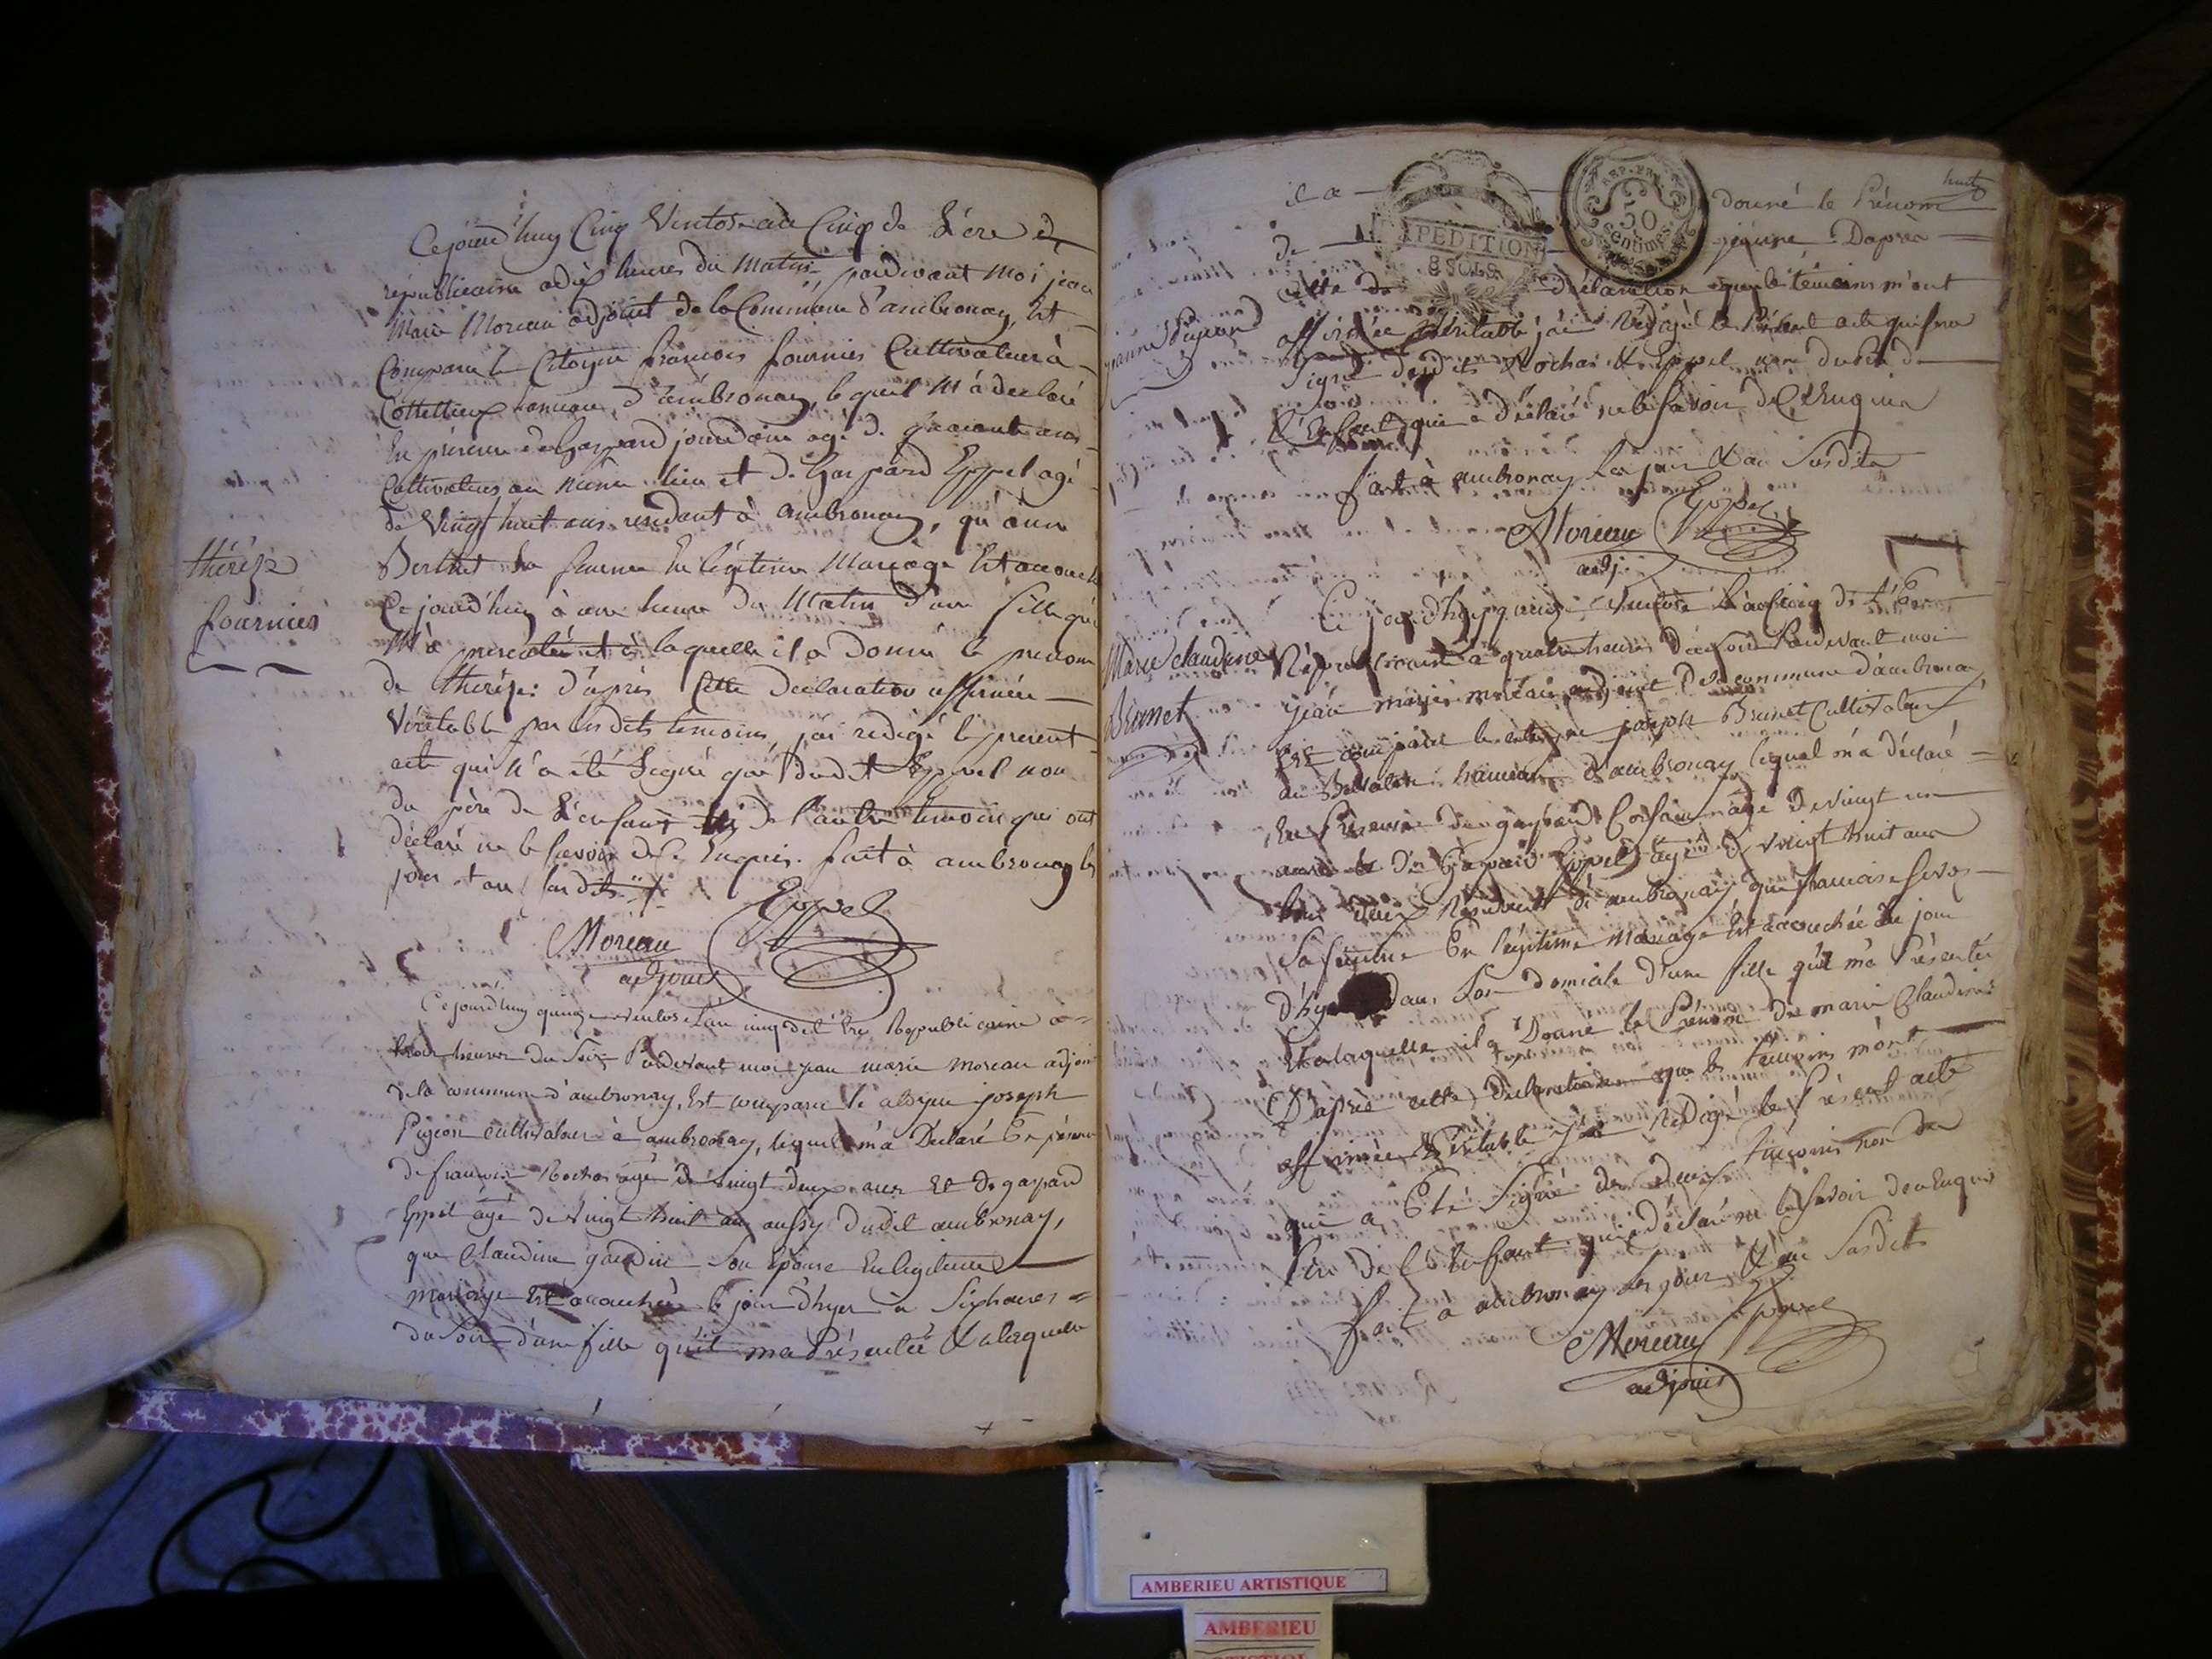 Ce jourd'huy Cinq Ventose an Cinq de L'ère
républicaine a dix heures du Matin pardevant Moi jean
Marie Moreau adjoint de la Commune d'ambronay, Est
Comparu le Citoyen francois fournier Cultivateur à
Cottelieux hameau d'ambronay, le quel M'a déclaré
En présence de Gaspard jourdain agé de ans
Cultivateur au même lieu et de Gaspard Eppel agé
de Vingt huit ans residant à ambronay, qu'
Berthet sa femme En légitime Mariage Est accouchée
Ce jourd'huy à une heure du Matin d'une fille qu'il
M'a presentée et à laquelle il a Donné le prenom
de thérèze: d'après Cette Declaration affirmée
Véritable par les dits temoins, j'ai redigé le present
acte qui n'a été Signé que dudit Eppel non
du père de L'enfant ni de l'autre temoin qui ont
déclaré ne le savoir de ce Enquis. fait à ambronay les
jour et an sus dits
thérèze
fournier
Eppel
Moreau
adjoint
Ce jourd'huy quinze ventose L'an cinq de l'Ere Republicaine a
heures du Soir Pardevant moi jean marie moreau adjoint
de la commune d'ambronay, Est comparu le citoyen joseph
Pigeon cultivateur à ambronay, lequel m'a Déclaré En présence
de francois Rochas agé de vingt deux ans Et de gaspard
Eppel âgé de vingt huit ans aussy dudit ambronay,
que Claudine gardin Son Epouse En légitime
mariage Est accouchée le jour d'hyer à Six heures
du Soir d'une fille qu'il m'a Présentée & a laquelle
huit
il a donné le Prénom
de jeanne. D'après
EXPEDITION
8 SOLS
REP. FRA.
50
centimes
cette déclaration que les témoins m'ont
affirmée Véritable j'ai Rédigé le Présent acte qui sera
Signé desdits Rochas & Eppel non du Père de
L'Enfant qui a déclaré ne le savoir de ce Enquis
fait à ambronay les jour & an Susdits
jeanne Pigeon
Eppel
Moreau
adj.
Ce jourd'huy quinze Ventose L'an Cinq de L'Ere
Républicaine a quatre heures du soir Pardevant moi
jean marie moreau adjoint de la commune d'ambronay
Est comparu le citoyen joseph Brunet Cultivateur
au hameau d'ambronay lequel m'a déclaré
En Présence de gaspard agé de vingt un
ans & de Gaspard Eppel agé de vingt huit ans
tous deux Résidents à ambronay que francoise
Sa femme En légitime Mariage Est accouchée du jour
d'hyer dans Son domicile d'une fille qu'il m'a Présentée
Et a laquelle il a Donné le Prénom de marie Claudine
D'après cette déclaration que les temoins m'ont
affirmée Véritable j'ai Rédigé le Présent acte
qui a Eté Signé des deux témoins non du
Père de L'Enfant qui a déclaré ne le savoir de ce Enquis
fait a ambronay les jour & an Susdits
Marie Claudine
Brunet
Eppel
Moreau
adjoint
AMBERIEU ARTISTIQUE
AMBERIEU
ARTISTIQUE